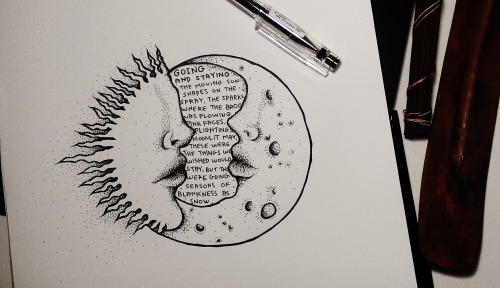 GOING
AND STAYING
THE MOVING SUN
SHAPES ON THE
SPRAY, THE SPARKL
WHERE THE BROO
WAS FLOWING
PINK FACES,
PLIGHTING
MOONLIT MAY
THESE WERE
THE THINGS WE
WISHED WOULD
STAY, BUT THE
WERE GOING
SEASONS OF
BLANKNESS AS
SNOW